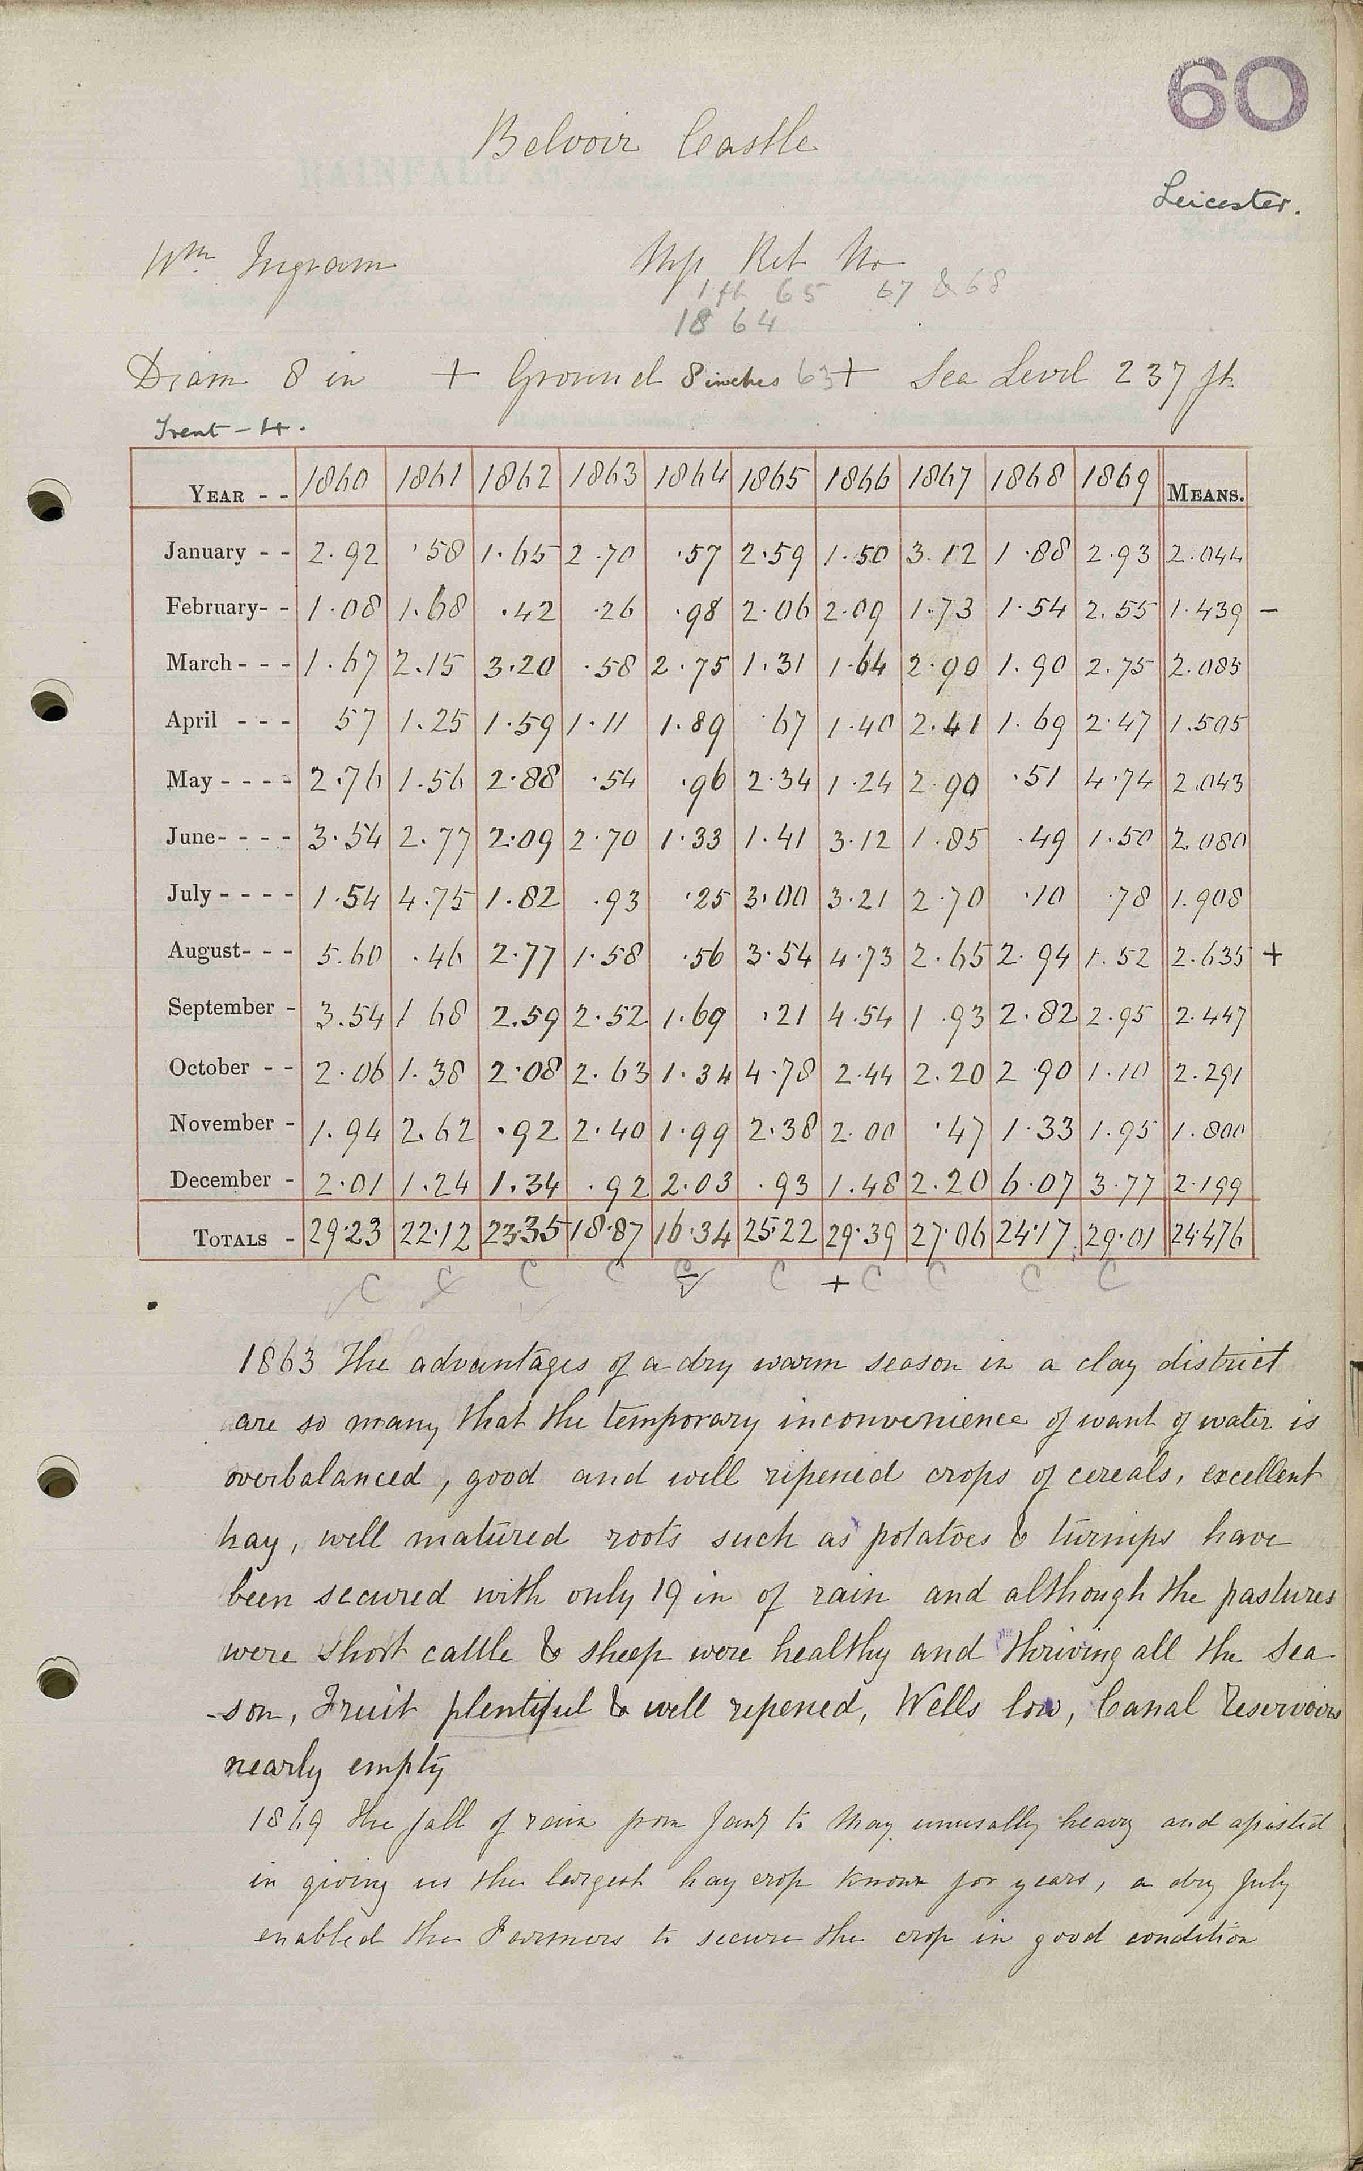 60
Belvoir Castle
Leicester.
Wm. Ingram Mp Ret No
1 ft 65 67 & 68
18 64
Diam 8 in + Ground 8 inches 63 + Sea Level 237 ft
Trent - 4.
YEAR - - 1860 1861 1862 1863 1864 1865 1866 1867 1868 1869 MEANS.
January - - 2.92 .58 1.65 2.70 .57 2.59 1.50 3.12 1.88 2.93 2.044
February- - 1.08 1.68 .42 .26 .98 2.06 2.09 1.73 1.54 2.55 1.439 -
March - - - 1.67 2.15 3.20 .58 2.75 1.31 1.64 2.90 1.90 2.75 2.085
April - - - 57 1.25 1.59 1.11 1.89 .67 1.40 2.41 1.69 2.47 1.505
May - - - - 2.76 1.56 2.88 .54 .96 2.34 1.24 2.90 .51 4.74 2.043
June- - - - 3.54 2.77 2.09 2.70 1.33 1.41 3.12 1.85 .49 1.50 2.080
July - - - - 1.54 4.75 1.82 .93 .25 3.00 3.21 2.70 .10 .78 1.908
August- - - 5.60 .46 2.77 1.58 .56 3.54 4.73 2.65 2.94 1.52 2.635 +
September - 3.54 1 68 2.59 2.52 1.69 .21 4.54 1.93 2.82 2.95 2.447
October - - 2.06 1.38 2.08 2.63 1.34 4.78 2.44 2.20 2 90 1.10 2.291
November - 1.94 2.62 .92 2.40 1.99 2.38 2.00 .47 1.33 1.95 1.800
December - 2.01 1.24 1.34 .92 2.03 .93 1.48 2.20 6.07 3.77 2.199
TOTALS - 29.23 22.12 23.35 18.87 16.34 25.22 29.39 27.06 24.17 29.01 24.476
C C C C C C + C C C C
1863 The advantages of a dry warm season in a clay district
are so many that the temporary inconvenience of want of water is
overbalanced, good and well ripened crops of cereals, excellent
hay, well matured roots such as potatoes & turnips have
been secured with only 19 in of rain and although the pastures
were short cattle & sheep were healthy and thriving all the sea
-son, Fruit plentiful & well ripened, Wells low, Canal Reservoirs
nearly empty
1869 The fall of rain from Jany to May unusally heavy and assisted
in giving us the largest hay crop known for years, a dry July
enabled the Farmers to secure the crop in good condition